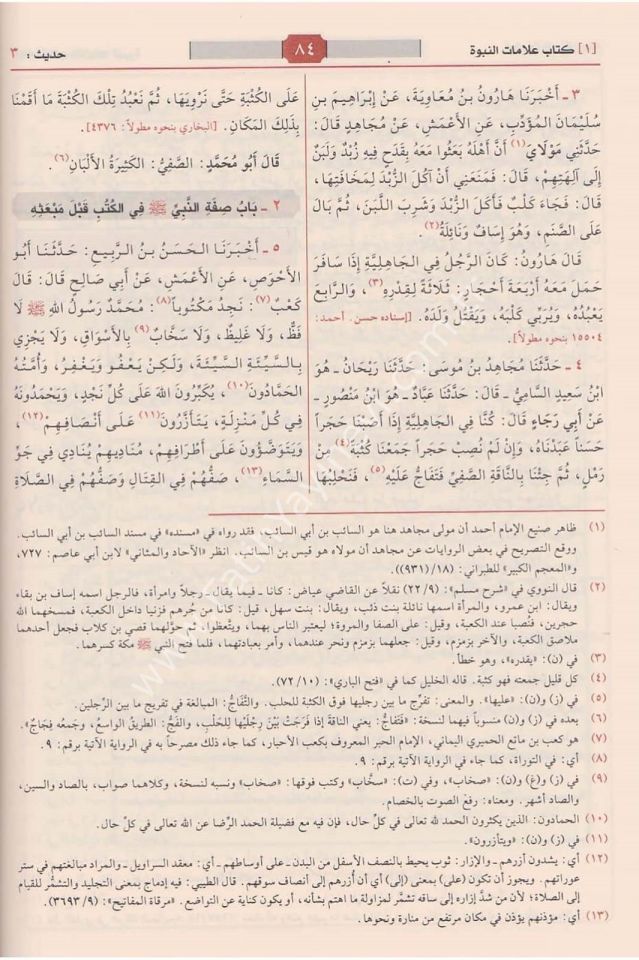 [١] كتاب علامات النبوة
٨٤
حديث : ٣
٣ ـ أَخْبَرَنَا هَارُونُ بنُ مُعَاوِيَةَ، عَنْ إِبْرَاهِيمَ بنِ
سُلَيْمَانَ المُؤَدِّبِ، عَنِ الأَعْمَشِ، عَنْ مُجَاهِدٍ قَالَ:
حَدَّثَنِي مَوْلَايَ(١) أَنَّ أَهْلَهُ بَعَثُوا مَعَهُ بِقَدَحٍ فِيهِ زُبْدٌ وَلَبَنٌ
إِلَى آلِهَتِهِمْ، قَالَ: فَمَنَعَنِي أَنْ آكُلَ الزُّبْدَ لِمَخَافَتِهَا،
قَالَ: فَجَاءَ كَلْبٌ فَأَكَلَ الزُّبْدَ وَشَرِبَ اللَّبَنَ، ثُمَّ بَالَ
عَلَى الصَّنَمِ، وَهُوَ إِسَافٌ وَنَائِلَةُ(٢).
قَالَ هَارُونُ: كَانَ الرَّجُلُ فِي الجَاهِلِيَّةِ إِذَا سَافَرَ
حَمَلَ مَعَهُ أَرْبَعَةَ أَحْجَارٍ: ثَلَاثَةً لِقِدْرِهِ(٣)، وَالرَّابِعَ
يَعْبُدُهُ، وَيُرَبِّي كَلْبَهُ، وَيَقْتُلُ وَلَدَهُ. [إسناده حسن. أحمد:
١٥٥٠٤ بنحوه مطولاً].
٤ ـ حَدَّثَنَا مُجَاهِدُ بنُ مُوسَى: حَدَّثَنَا رَيْحَانُ ـ هُوَ
ابْنُ سَعِيدٍ السَّامِيُّ ـ قَالَ: حَدَّثَنَا عَبَّادٌ ـ هُوَ ابْنُ مَنْصُورٍ ـ
عَنْ أَبِي رَجَاءٍ قَالَ: كُنَّا فِي الجَاهِلِيَّةِ إِذَا أَصَبْنَا حَجَراً
حَسَناً عَبَدْنَاهُ، وَإِنْ لَمْ نُصِبْ حَجَراً جَمَعْنَا كُثْبَةً(٤) مِنْ
رَمْلٍ، ثُمَّ جِئْنَا بِالنَّاقَةِ الصَّفِيِّ فَتَفَاجُّ عَلَيْهِ(٥)، فَنَحْلِبُهَا
عَلَى الكُثْبَةِ حَتَّى نَرْوِيَهَا، ثُمَّ نَعْبُدُ تِلْكَ الكُثْبَةَ مَا أَقَمْنَا
بِذَلِكَ المَكَانِ. [البخاري بنحوه مطولاً: ٤٣٧٦].
قَالَ أَبُو مُحَمَّدٍ: الصَّفِيُّ: الكَثِيرَةُ الأَلْبَانِ(٦).
٢ ـ بَابُ صِفَةِ النَّبِيِّ ﷺ فِي الكُتُبِ قَبْلَ مَبْعَثِهِ
٥ ـ أَخْبَرَنَا الحَسَنُ بنُ الرَّبِيعِ: حَدَّثَنَا أَبُو
الأَحْوَصِ، عَنِ الأَعْمَشِ، عَنْ أَبِي صَالِحٍ قَالَ: قَالَ
كَعْبٌ(٧): نَجِدُ مَكْتُوباً(٨): مُحَمَّدٌ رَسُولُ اللهِ ﷺ لَا
فَظٌّ، وَلَا غَلِيظٌ، وَلَا سَخَّابٌ(٩) بِالأَسْوَاقِ، وَلَا يَجْزِي
بِالسَّيِّئَةِ السَّيِّئَةَ، وَلَكِنْ يَعْفُو وَيَغْفِرُ، وَأُمَّتُهُ
الحَمَّادُونَ(١٠)، يُكَبِّرُونَ اللهَ عَلَى كُلِّ نَجْدٍ، وَيَحْمَدُونَهُ
فِي كُلِّ مَنْزِلَةٍ، يَتَأَزَّرُونَ(١١) عَلَى أَنْصَافِهِمْ(١٢)،
وَيَتَوَضَّؤُونَ عَلَى أَطْرَافِهِمْ، مُنَادِيهِمْ يُنَادِي فِي جَوِّ
السَّمَاءِ(١٣)، صَفُّهُمْ فِي القِتَالِ وَصَفُّهُمْ فِي الصَّلَاةِ
(١) ظاهر صنيع الإمام أحمد أن مولى مجاهد هنا هو السائب بن أبي السائب. فقد رواه في «مسنده» في مسند السائب بن أبي السائب.
ووقع التصريح في بعض الروايات عن مجاهد أن مولاه هو قيس بن السائب. انظر «الآحاد والمثاني» لابن أبي عاصم: ٧٢٧،
و«المعجم الكبير» للطبراني: (١٨/(٩٣١)).
(٢) قال النووي في «شرح مسلم»: (٢٢/٩) نقلاً عن القاضي عياض: كانا ـ فيما يقال ـ رجلاً وامرأة، فالرجل اسمه إساف بن بقاء
ويقال: ابن عمرو، والمرأة اسمها نائلة بنت ذئب، ويقال: بنت سهل، قيل: كانا من جُرهم فزنيا داخل الكعبة، فمسخهما الله
حجرين، فنُصبا عند الكعبة، وقيل: على الصفا والمروة؛ ليعتبر الناس بهما، ويتَّعظوا، ثم حوَّلهما قصي بن كلاب فجعل أحدهما
ملاصق الكعبة، والآخر بزمزم، وقيل: جعلهما بزمزم ونحر عندهما، وأمر بعبادتهما، فلما فتح النبي ﷺ مكة كسرهما.
(٣) في (ن): «يقدره»، وهو خطأ.
(٤) كل قليل جمعته فهو كثبة. قاله الخليل كما في «فتح الباري»: (٧٢/١٠).
(٥) في (ز) و(ن): «عليها». والمعنى: تفرِّج ما بين رجليها فوق الكثبة للحلب. والتَّفاجُّ: المبالغة في تفريج ما بين الرِّجلين.
(٦) بعده في (ز) و(ن) منسوباً فيهما لنسخة: «فَتَفَاجُّ: يعني الناقة إذا فَرَجَتْ بَيْنَ رِجْلَيْهَا لِلْحَلْبِ، والفَجُّ: الطريق الواسع، وجَمعُه فِجَاجٌ».
(٧) هو كعب بن ماتع الحميري اليماني، الإمام الحبر المعروف بكعب الأحبار، كما جاء ذلك مصرحاً به في الرواية الآتية برقم: ٩.
(٨) أي: في التوراة، كما جاء في الرواية الآتية برقم: ٩.
(٩) في (ز) و(غ) و(ن): «صخاب»، وفي (ت): «سخَّاب» وكتب فوقها: «صخاب» ونسبه لنسخة، وكلاهما صواب، بالصاد والسين،
والصاد أشهر. ومعناه: رفع الصوت بالخصام.
(١٠) الحمادون: الذين يكثرون الحمد لله تعالى في كل حال، فإن فيه مع فضيلة الحمد الرضا عن الله تعالى في كل حال.
(١١) في (ز) و(ن): «ويتأزرون».
(١٢) أي: يشدون أزرهم ـ والإزار: ثوب يحيط بالنصف الأسفل من البدن ـ على أوساطهم ـ أي: معقد السراويل ـ والمراد مبالغتهم في ستر
عوراتهم. ويجوز أن تكون (على) بمعنى (إلى) أي أن أُزرهم إلى أنصاف سوقهم. قال الطيبي: فيه إدماج بمعنى التجليد والتشمُّر للقيام
إلى الصلاة؛ لأن من شدَّ إزاره إلى ساقه تشمَّر لمزاولة ما اهتم بشأنه، أو يكون كناية عن التواضع. «مرقاة المفاتيح»: (٣٦٩٣/٩).
(١٣) أي: مؤذنهم يؤذن في مكان مرتفع من منارة ونحوها.